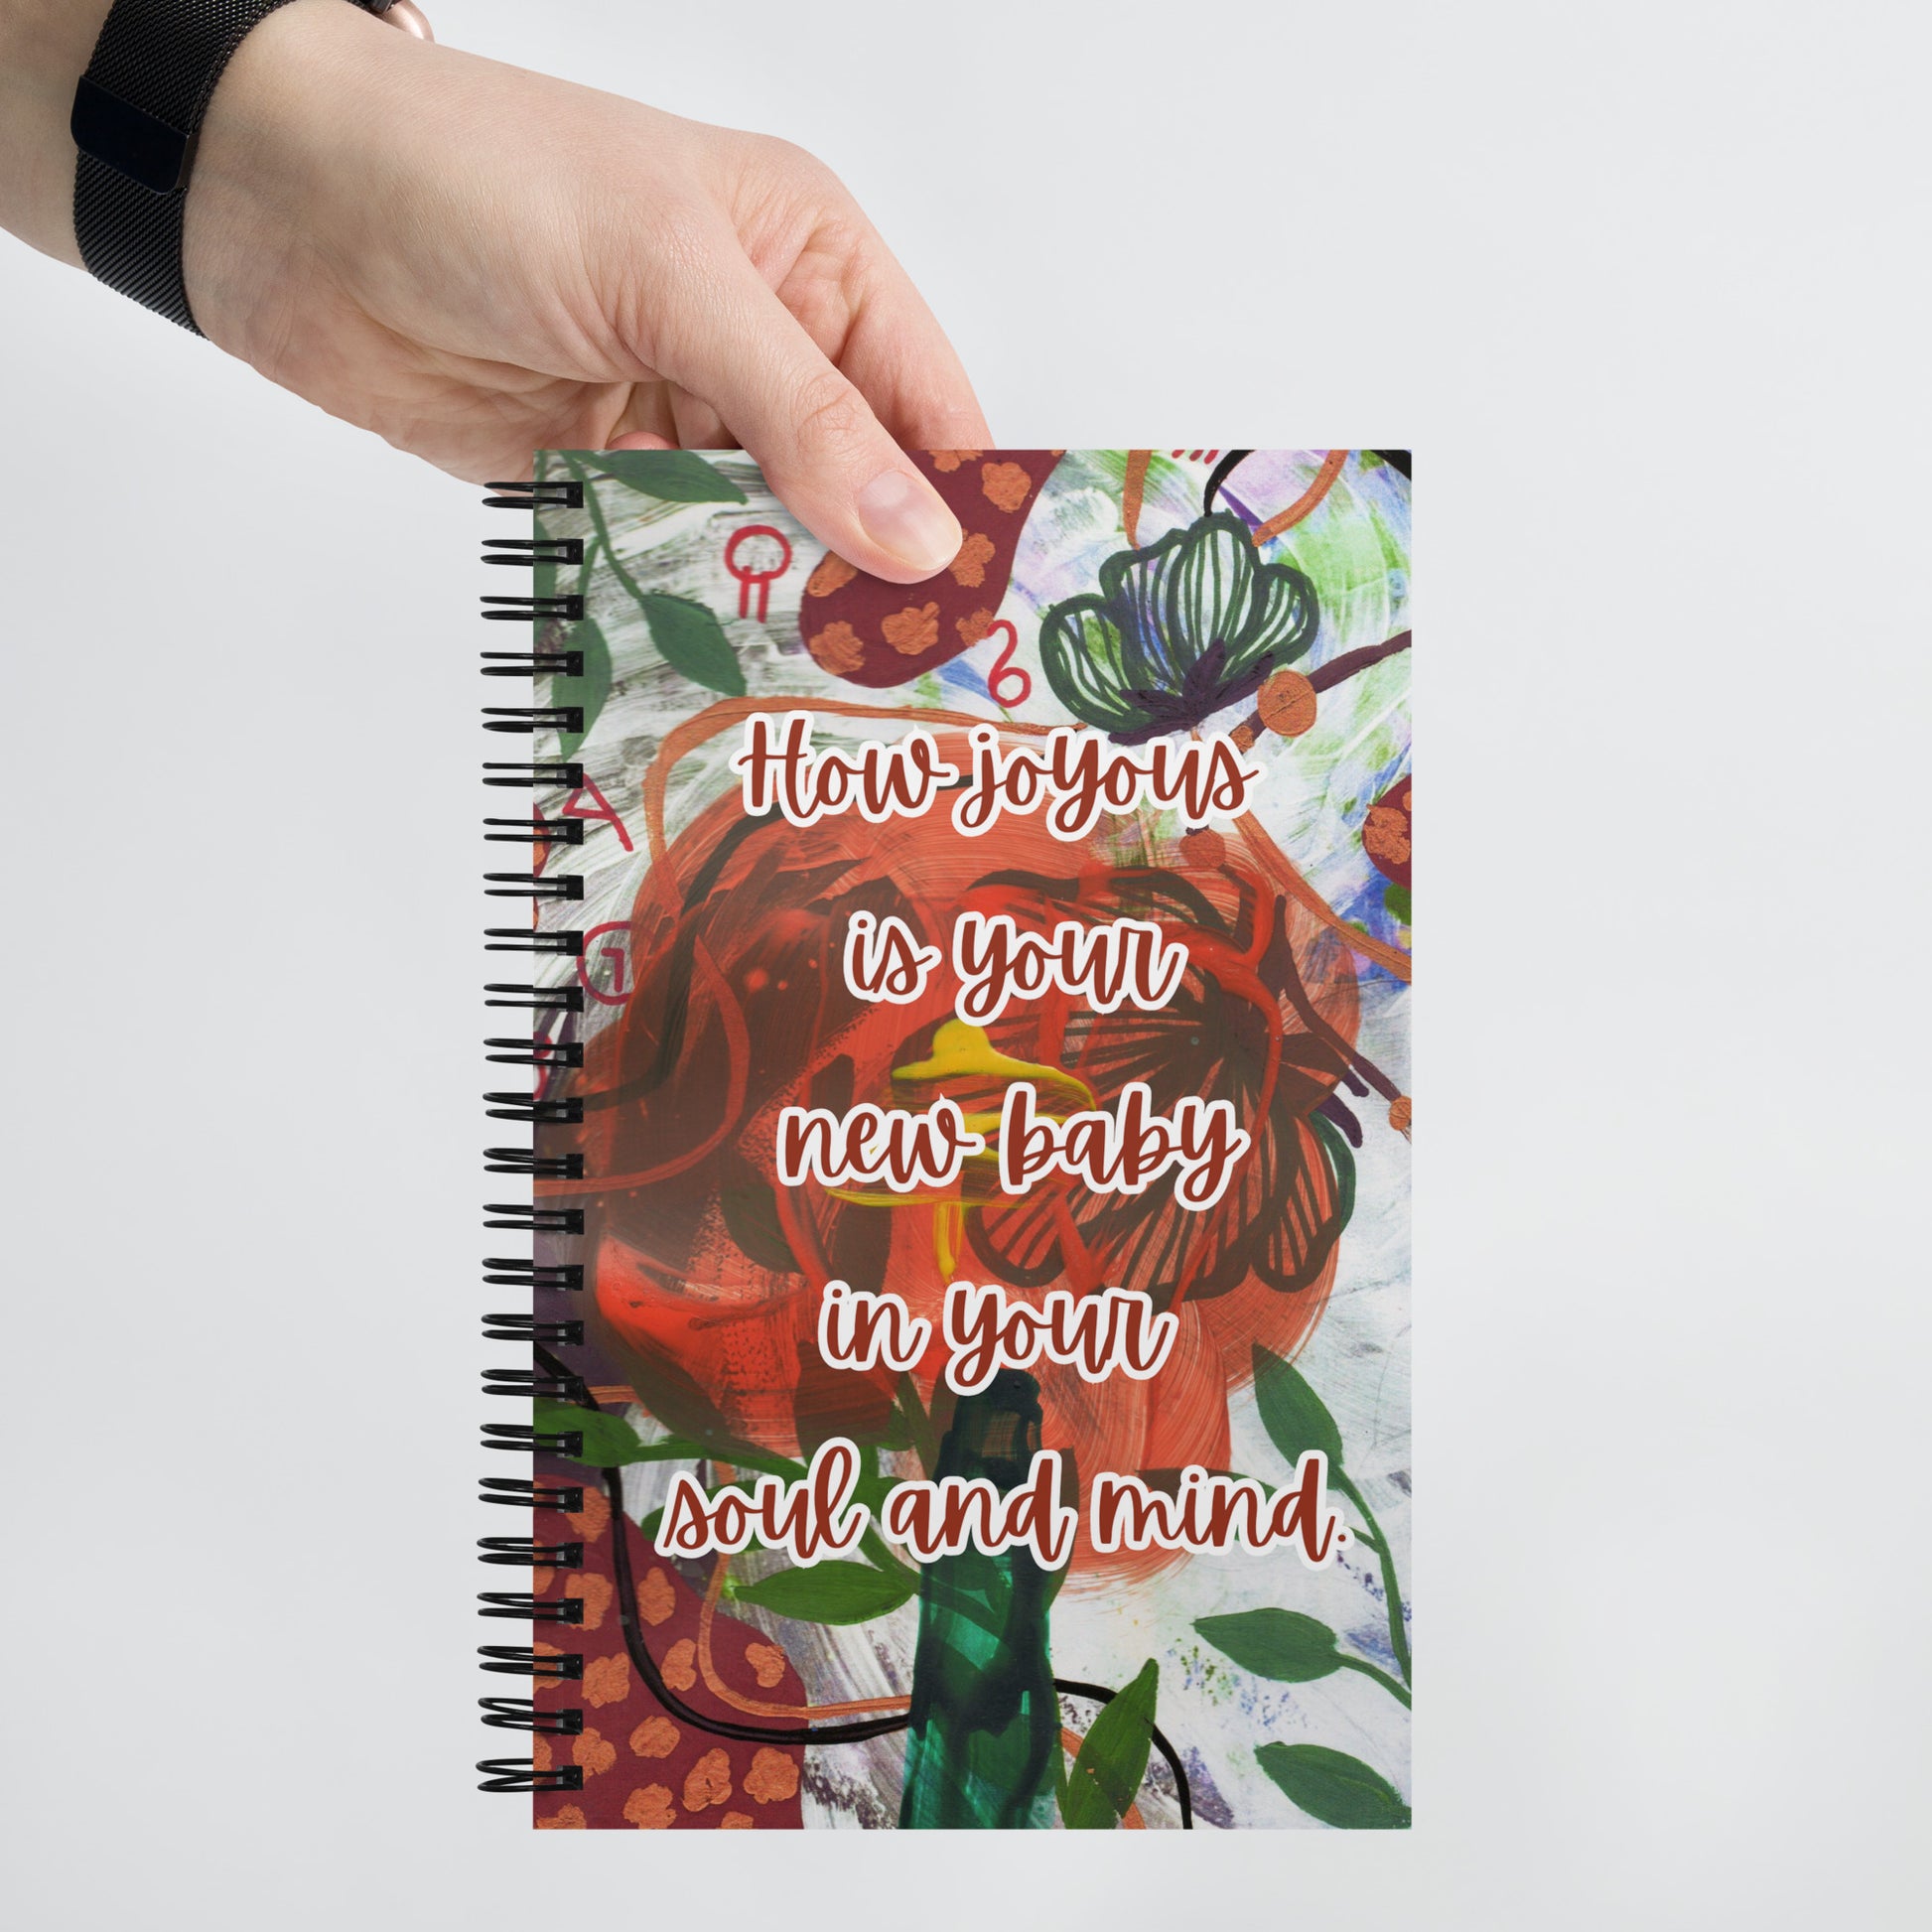 How joyous
is your
new baby
in your
soul and mind.